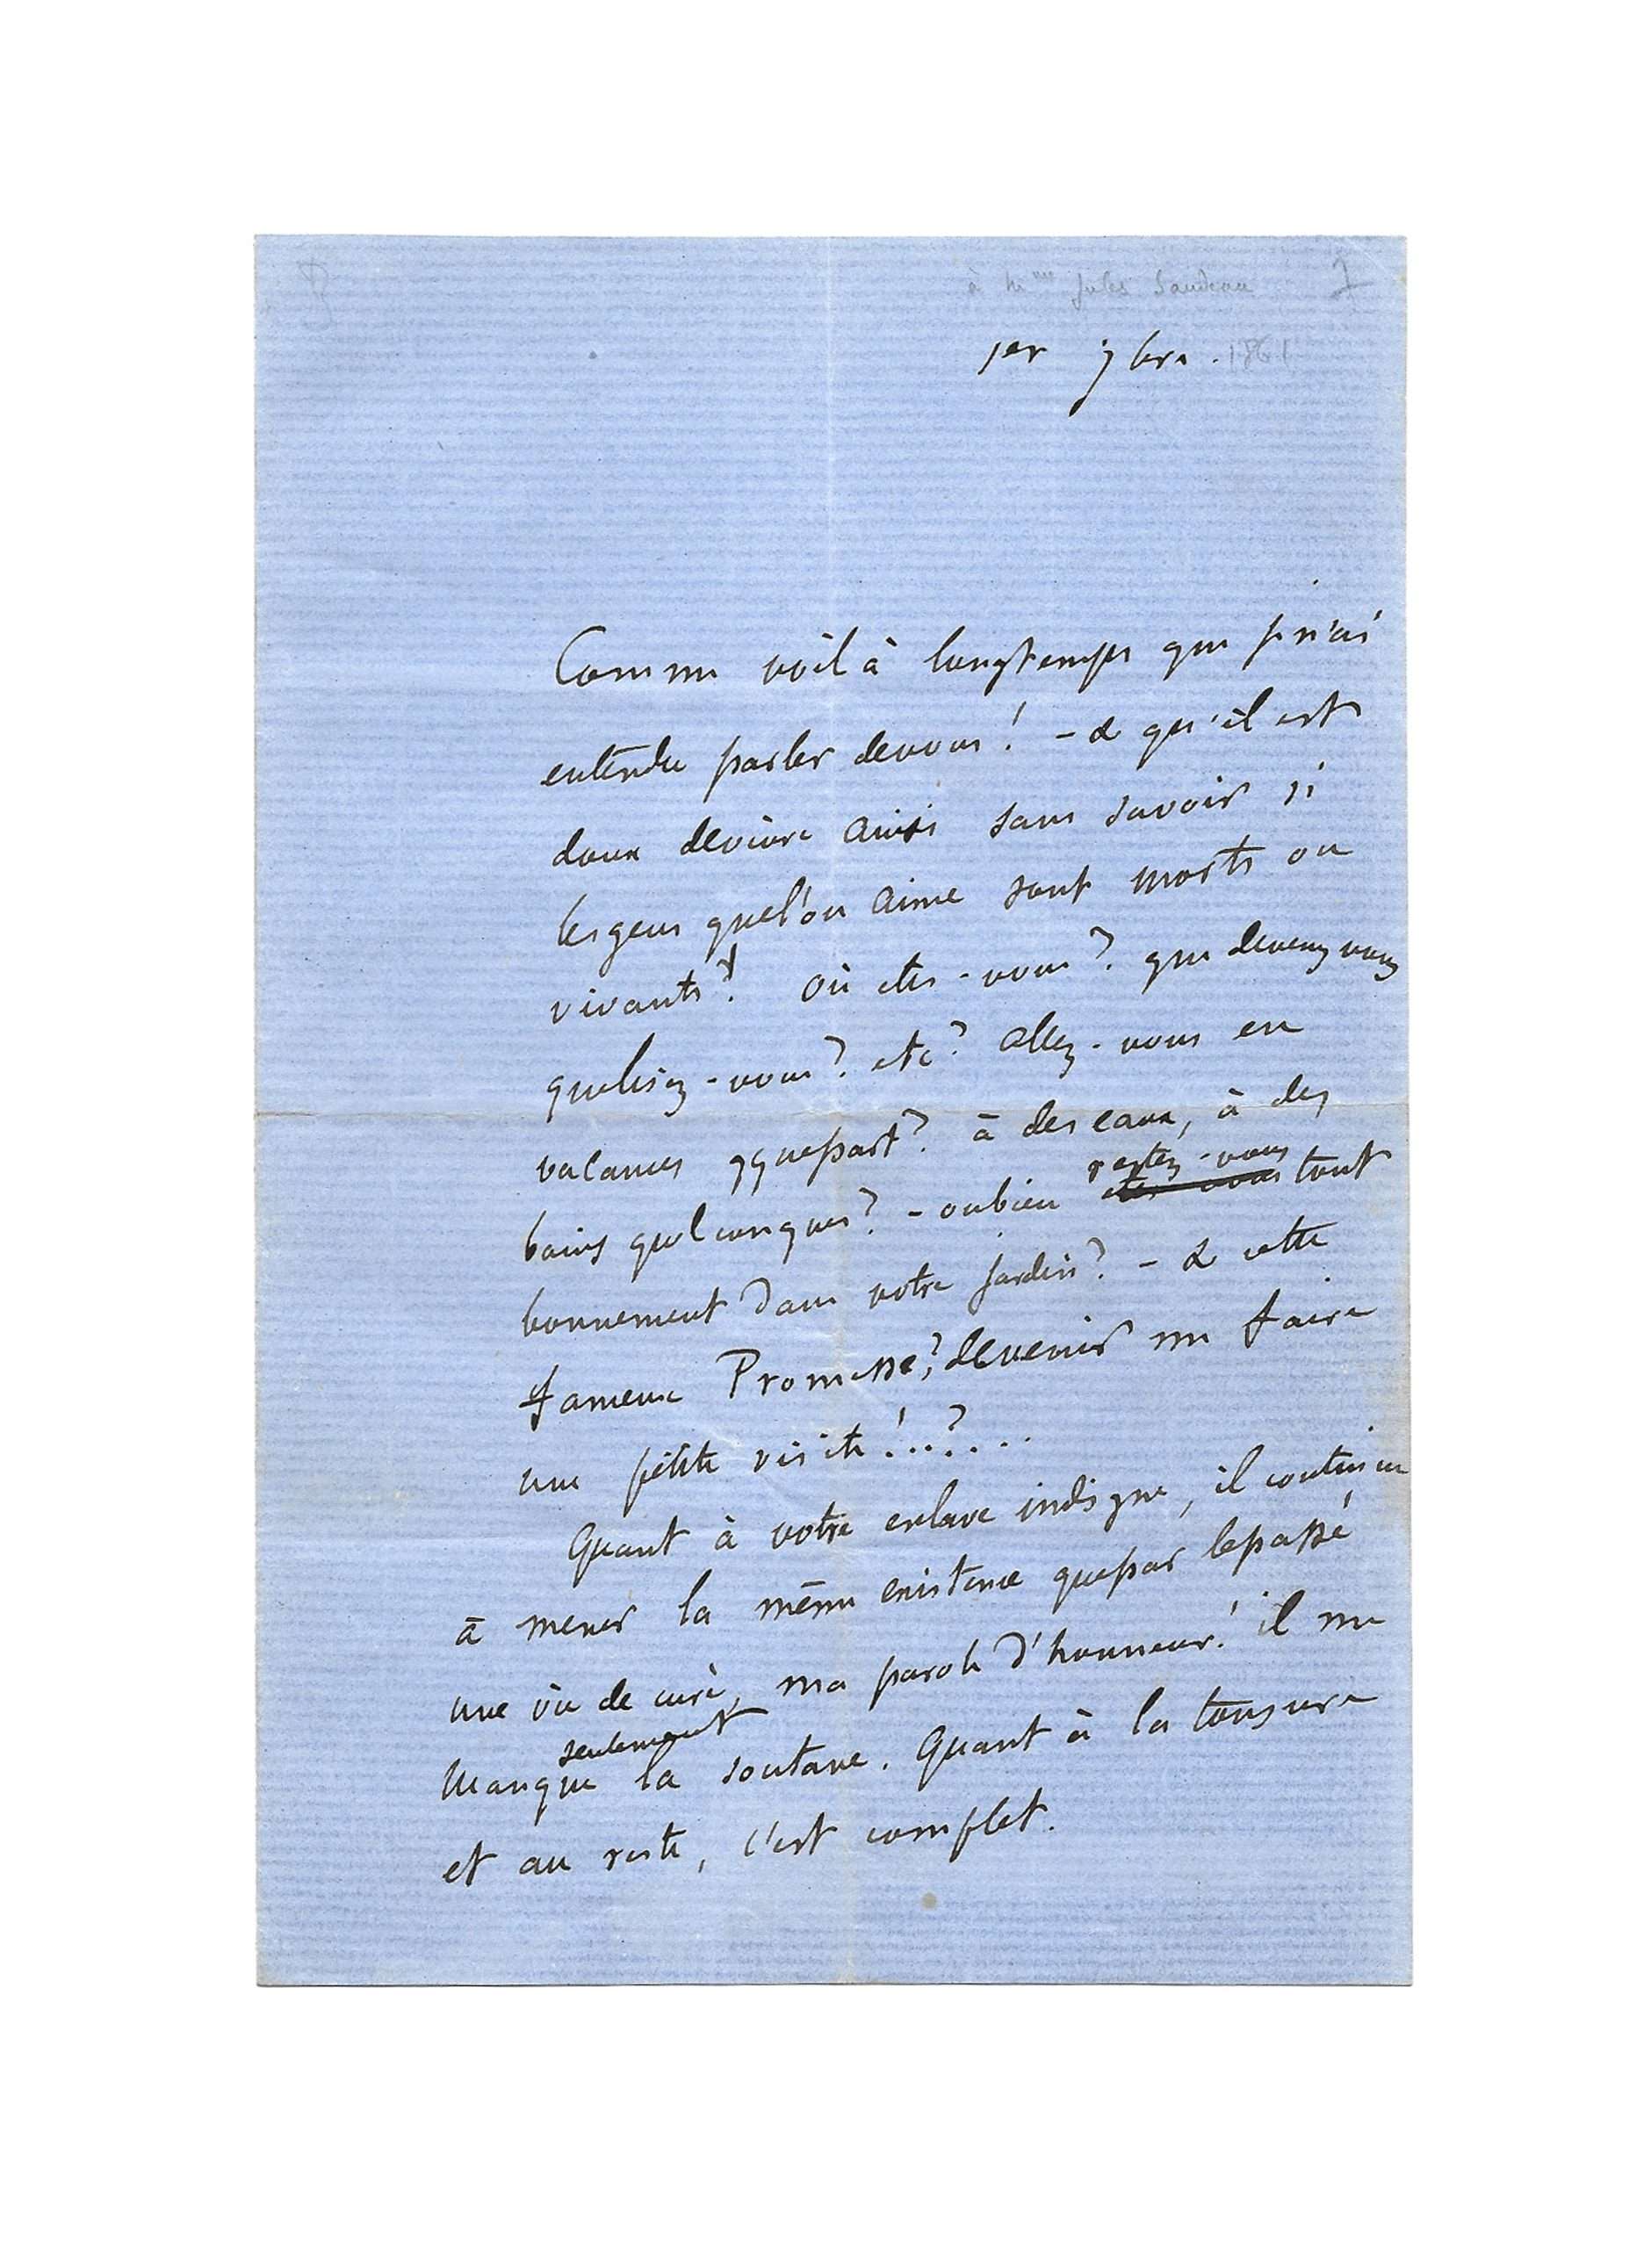 à Mme Jules Sandeau 1
1er 7bre. 1861
Comme voilà longtemps que je n'ai
entendu parler de vous! - & qu'il est
doux de vivre ainsi sans savoir si
les gens que l'on aime sont morts ou
vivants! Où êtes-vous? que devenez vous
que lisez-vous? etc? Allez-vous en
vacances qque part? à des eaux, à des
bains quelconques? - ou bien restez-vous tout
bonnement dans votre jardin? - & cette
fameuse Promesse, de venir me faire
une petite visite!..?...
Quant à votre esclave indigne, il continue
à mener la même existence que par le passé
une vie de curé, ma parole d'honneur! il me
manque seulement la soutane. Quant à la tonsure
et au reste, c'est complet.